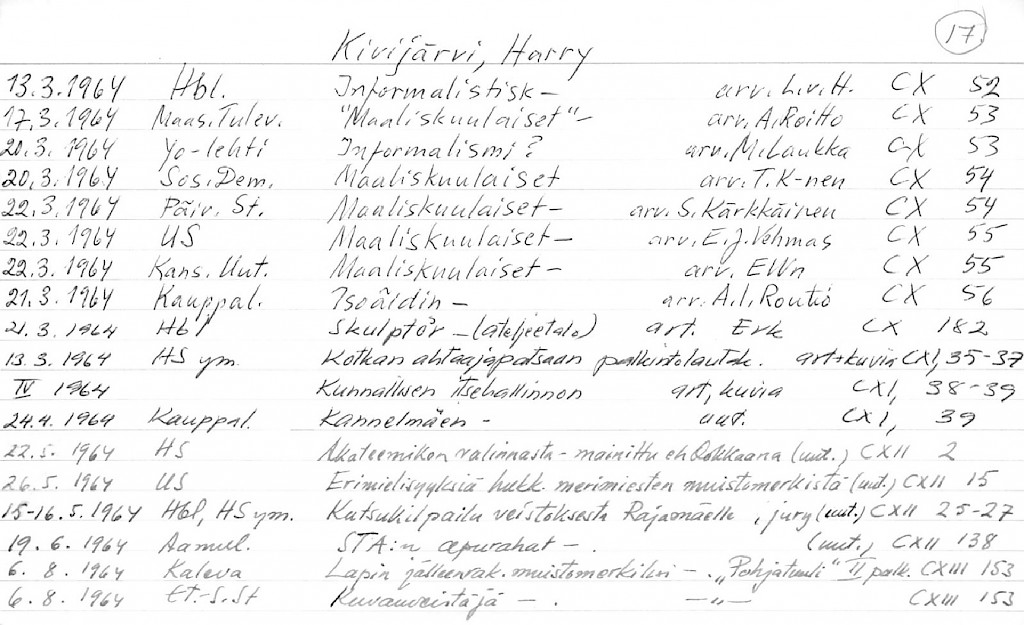 17.
Kivijärvi, Harry
13.3.1964 Hbl. Informalistisk – arv. L.v.H. CX 52
17.3.1964 Maas.Tulev. "Maaliskuulaiset" – arv. A.Roitto CX 53
20.3.1964 Yo-lehti Informalismi? arv. M.Laukka CX 53
20.3.1964 Sos.Dem. Maaliskuulaiset arv. T.K-nen CX 54
22.3.1964 Päiv. St. Maaliskuulaiset – arv. S.Kärkkäinen CX 54
22.3.1964 US Maaliskuulaiset – arv. E.J.Vehmas CX 55
22.3.1964 Kans. Uut. Maaliskuulaiset – arv. EWn CX 55
21.3.1964 Kauppal. Isoäidin – arv. A.I.Routio CX 56
21.3.1964 Hbl Skulptör – (ateljeetalo) art. Erk CX 182
13.3.1964 HS ym. Kotkan ahtaajapatsaan palkintolautak. art+kuvia CXI, 35-37
IV 1964 Kunnallisen itsehallinnon art, kuvia CXI, 38-39
24.4.1964 Kauppal. Kannelmäen – uut. CXI, 39
22.5.1964 HS Akateemikon valinnasta – mainittu ehdokkaana (uut.) CXII 2
26.5.1964 US Erimielisyyksiä hukk. merimiesten muistomerkistä (uut) CXII 15
15-16.5.1964 Hbl, HS ym. Kutsukilpailu veistoksesta Rajamäelle, jury (uut.) CXII 25-27
19.6.1964 Aamul. STA:n apurahat – . (uut.) CXII 138
6.8.1964 Kaleva Lapin jälleenrak. muistomerkiksi – . "Pohjatuuli" II palk. CXIII 153
6.8.1964 Et.-S.St Kuvanveistäjä – . –"– CXIII 153